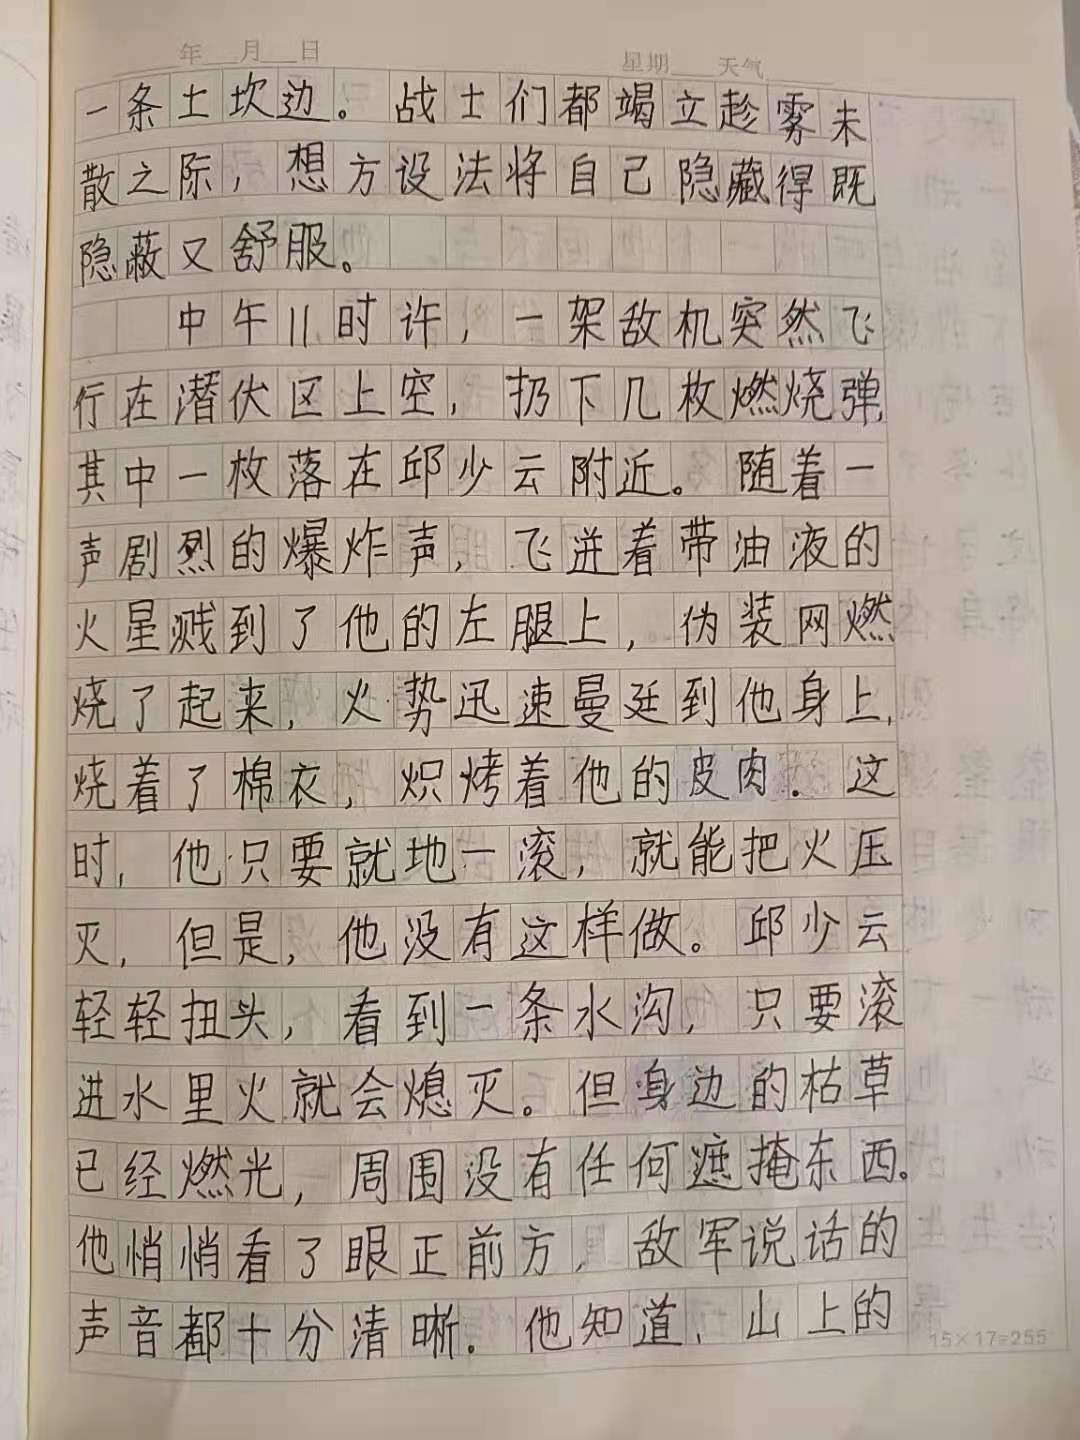 年 月 日 星期 天气
一条土坎边。战士们都竭立趁雾未
散之际，想方设法将自己隐藏得既
隐蔽又舒服。
中午11时许，一架敌机突然飞
行在潜伏区上空，扔下几枚燃烧弹，
其中一枚落在邱少云附近。随着一
声剧烈的爆炸声，飞迸着带油液的
火星溅到了他的左腿上，伪装网燃
烧了起来，火势迅速曼廷到他身上，
烧着了棉衣，炽烤着他的皮肉．这
时，他只要就地一滚，就能把火压
灭，但是，他没有这样做。邱少云
轻轻扭头，看到一条水沟，只要滚
进水里火就会熄灭。但身边的枯草
已经燃光，周围没有任何遮掩东西。
他悄悄看了眼正前方，敌军说话的
声音都十分清晰。他知道，山上的
15×17=255